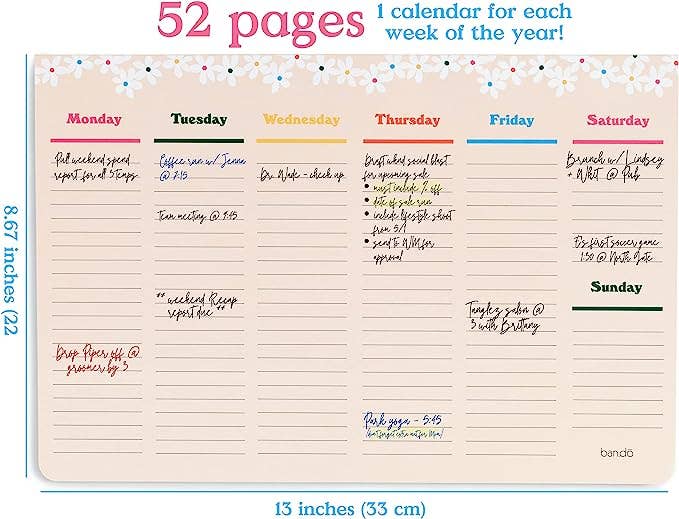 52 pages
1 calendar for each
week of the year!
Monday
Pull weekend spend
report for all 5 temps.
Drop Piper off @
groomer by 3
Tuesday
Coffee run w/ Jenna
@ 7:15
Team meeting @ 9:45
** weekend Recap
report due **
Wednesday
Dr. Wade - check up
Thursday
Draft wknd social blast
for upcoming sale
• must include % off
• date of sale run
• include lifestyle shoot
from 5/1
• send to WM for
approval
Park yoga - 5:45
(don't forget extra mat for Mia)
Friday
Tanglez salon @
3 with Brittany
Saturday
Brunch w/ Lindsey
+ Whit @ Pub
E's first soccer game
1:30 @ North Gate
Sunday
ban.dō
8.67 inches (22
13 inches (33 cm)